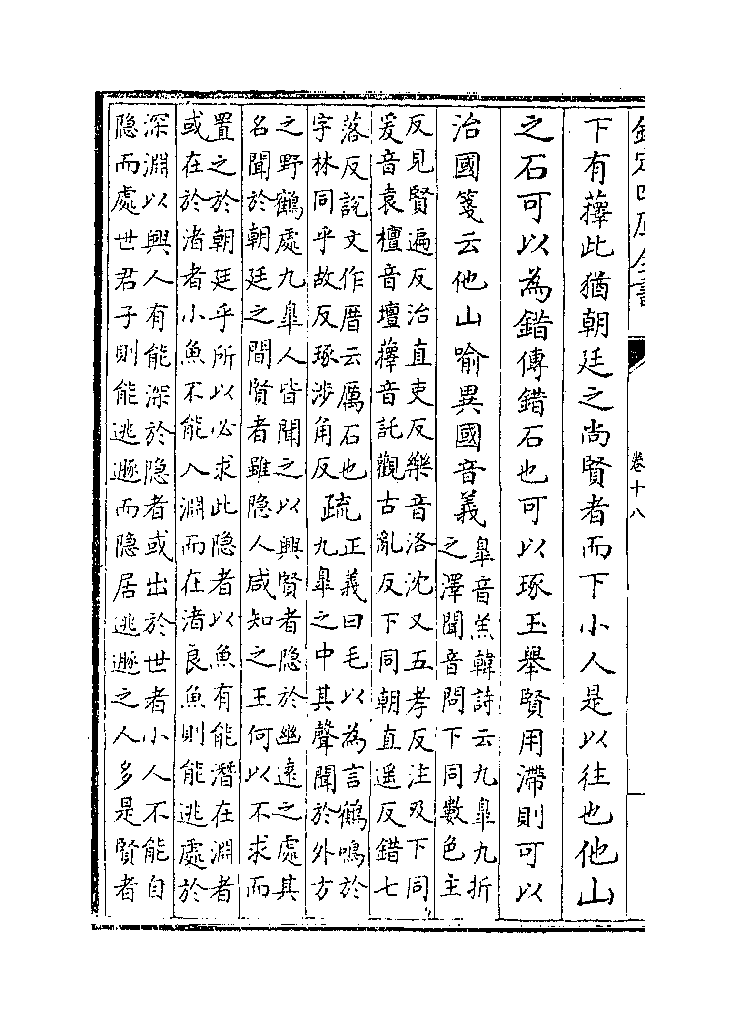 欽定四庫全書 卷十八
下有蘀此猶朝廷之尚賢者而下小人是以往也他山
之石可以為錯傳錯石也可以琢玉舉賢用滯則可以
治國箋云他山喻異國音義
皐音羔韓詩云九皐九折
之澤聞音問下同數色主
反見賢遍反治直吏反樂音洛沈又五孝反注及下同
爰音袁檀音壇蘀音託觀古亂反下同朝直遥反錯七
落反說文作厝云厲石也
字林同乎故反琢涉角反
疏
正義曰毛以為言鶴鳴於
九皐之中其聲聞於外方
之野鶴處九皐人皆聞之以興賢者隱於幽遠之處其
名聞於朝廷之間賢者雖隱人咸知之王何以不求而
置之於朝廷乎所以必求此隱者以魚有能潛在淵者
或在於渚者小魚不能入淵而在渚良魚則能逃處於
深淵以興人有能深於隱者或出於世者小人不能自
隱而處世君子則能逃遯而隱居逃遯之人多是賢者